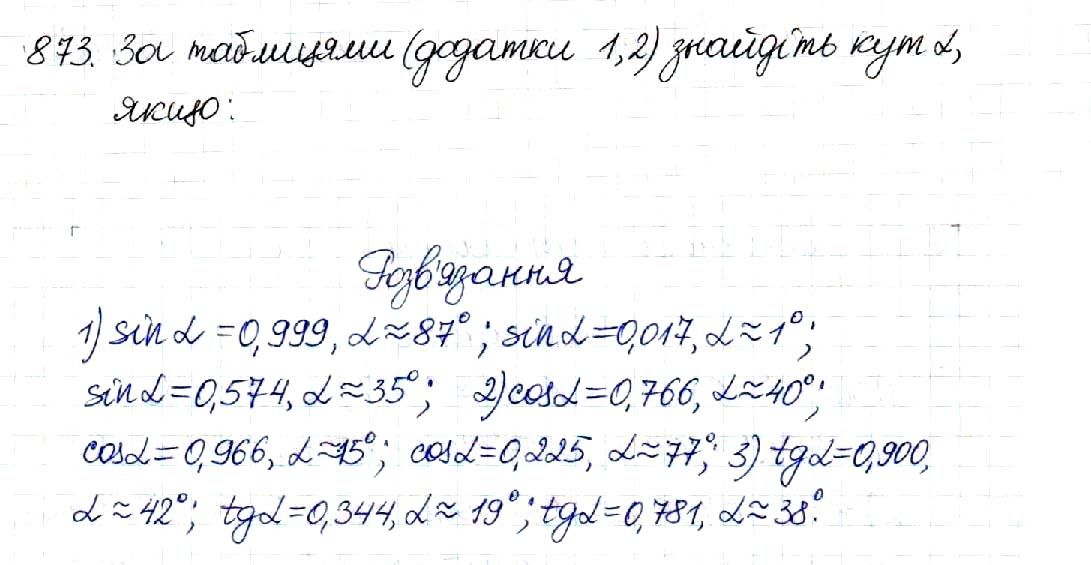 873. За таблицями (додатки 1,2) знайдіть кут α,
якщо:
Розв'язання
1) sin α = 0,999, α ≈ 87°; sin α = 0,017, α ≈ 1°;
sin α = 0,574, α ≈ 35°; 2) cos α = 0,766, α ≈ 40°;
cos α = 0,966, α ≈ 15°; cos α = 0,225, α ≈ 77°; 3) tg α = 0,900,
α ≈ 42°; tg α = 0,344, α ≈ 19°; tg α = 0,781, α ≈ 38°.